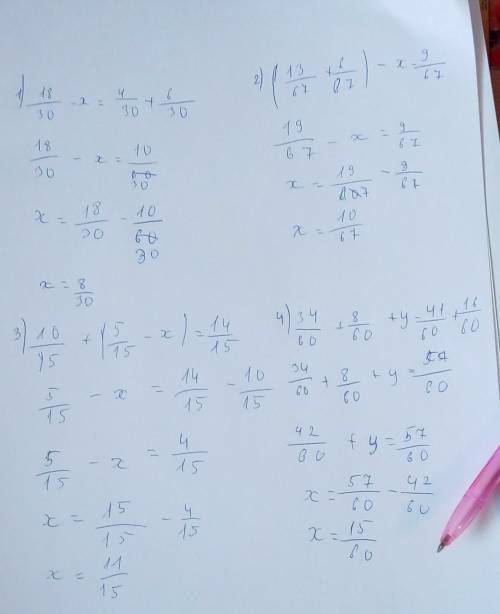 1) 18/30 - x = 4/30 + 6/30
18/30 - x = 10/30
x = 18/30 - 10/30
x = 8/30
2) (13/67 + 6/67) - x = 9/67
19/67 - x = 9/67
x = 19/67 - 9/67
x = 10/67
3) 10/15 + (5/15 - x) = 14/15
5/15 - x = 14/15 - 10/15
5/15 - x = 4/15
x = 15/15 - 4/15
x = 11/15
4) 34/60 + 8/60 + y = 41/60 + 16/60
34/60 + 8/60 + y = 57/60
42/60 + y = 57/60
x = 57/60 - 42/60
x = 15/60